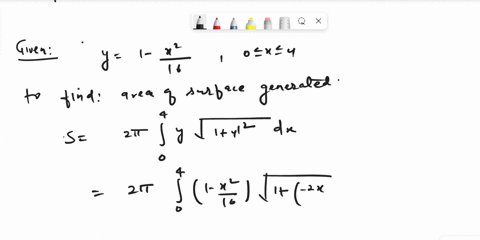 Given: y = 1 - x²/16 , 0 ≤ x ≤ 4
to find: area of surface generated.
S = 2π ∫₀⁴ y √(1+y'²) dx
= 2π ∫₀⁴ (1 - x²/16) √(1+(-2x